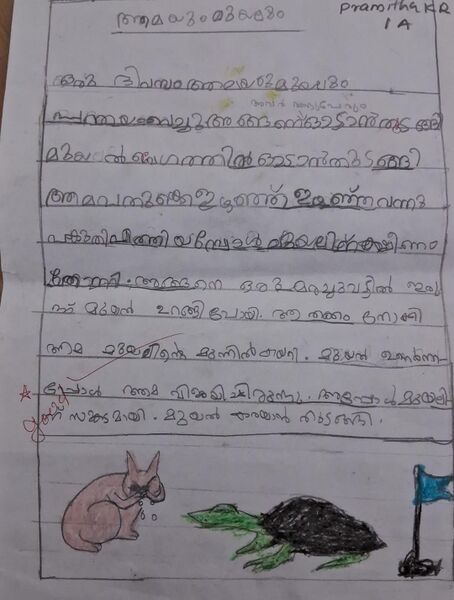 Pramitha KR
1 A
ആമയും മുയലും
ഒരു ദിവസം ആമയും മുയലും
അവർ രണ്ടുപേരും
പന്തയം വെച്ചു അങ്ങനെ ഓട്ടാൻ തുടങ്ങി
മുയൽ വേഗത്തിൽ ഓടാൻ തുടങ്ങി
ആമ പതുക്കെ ഇഴഞ്ഞ് ഇഴഞ്ഞ് വന്നു
പകുതി എത്തിയപ്പോൾ മുയലിന് ക്ഷീണം
തോന്നി. അങ്ങനെ ഒരു മരച്ചുവട്ടിൽ ഇരു
ന്ന് മുയൽ ഉറങ്ങി പോയി. ആ തക്കം നോക്കി
ആമ മുയലിന്റെ മുന്നിൽ കയറി. മുയൽ ഉണർന്ന
പ്പോൾ ആമ വിജയിച്ചിരുന്നു. അപ്പോൾ മുയലി
ന് സങ്കടമായി. മുയൽ കരയാൻ തുടങ്ങി.
good